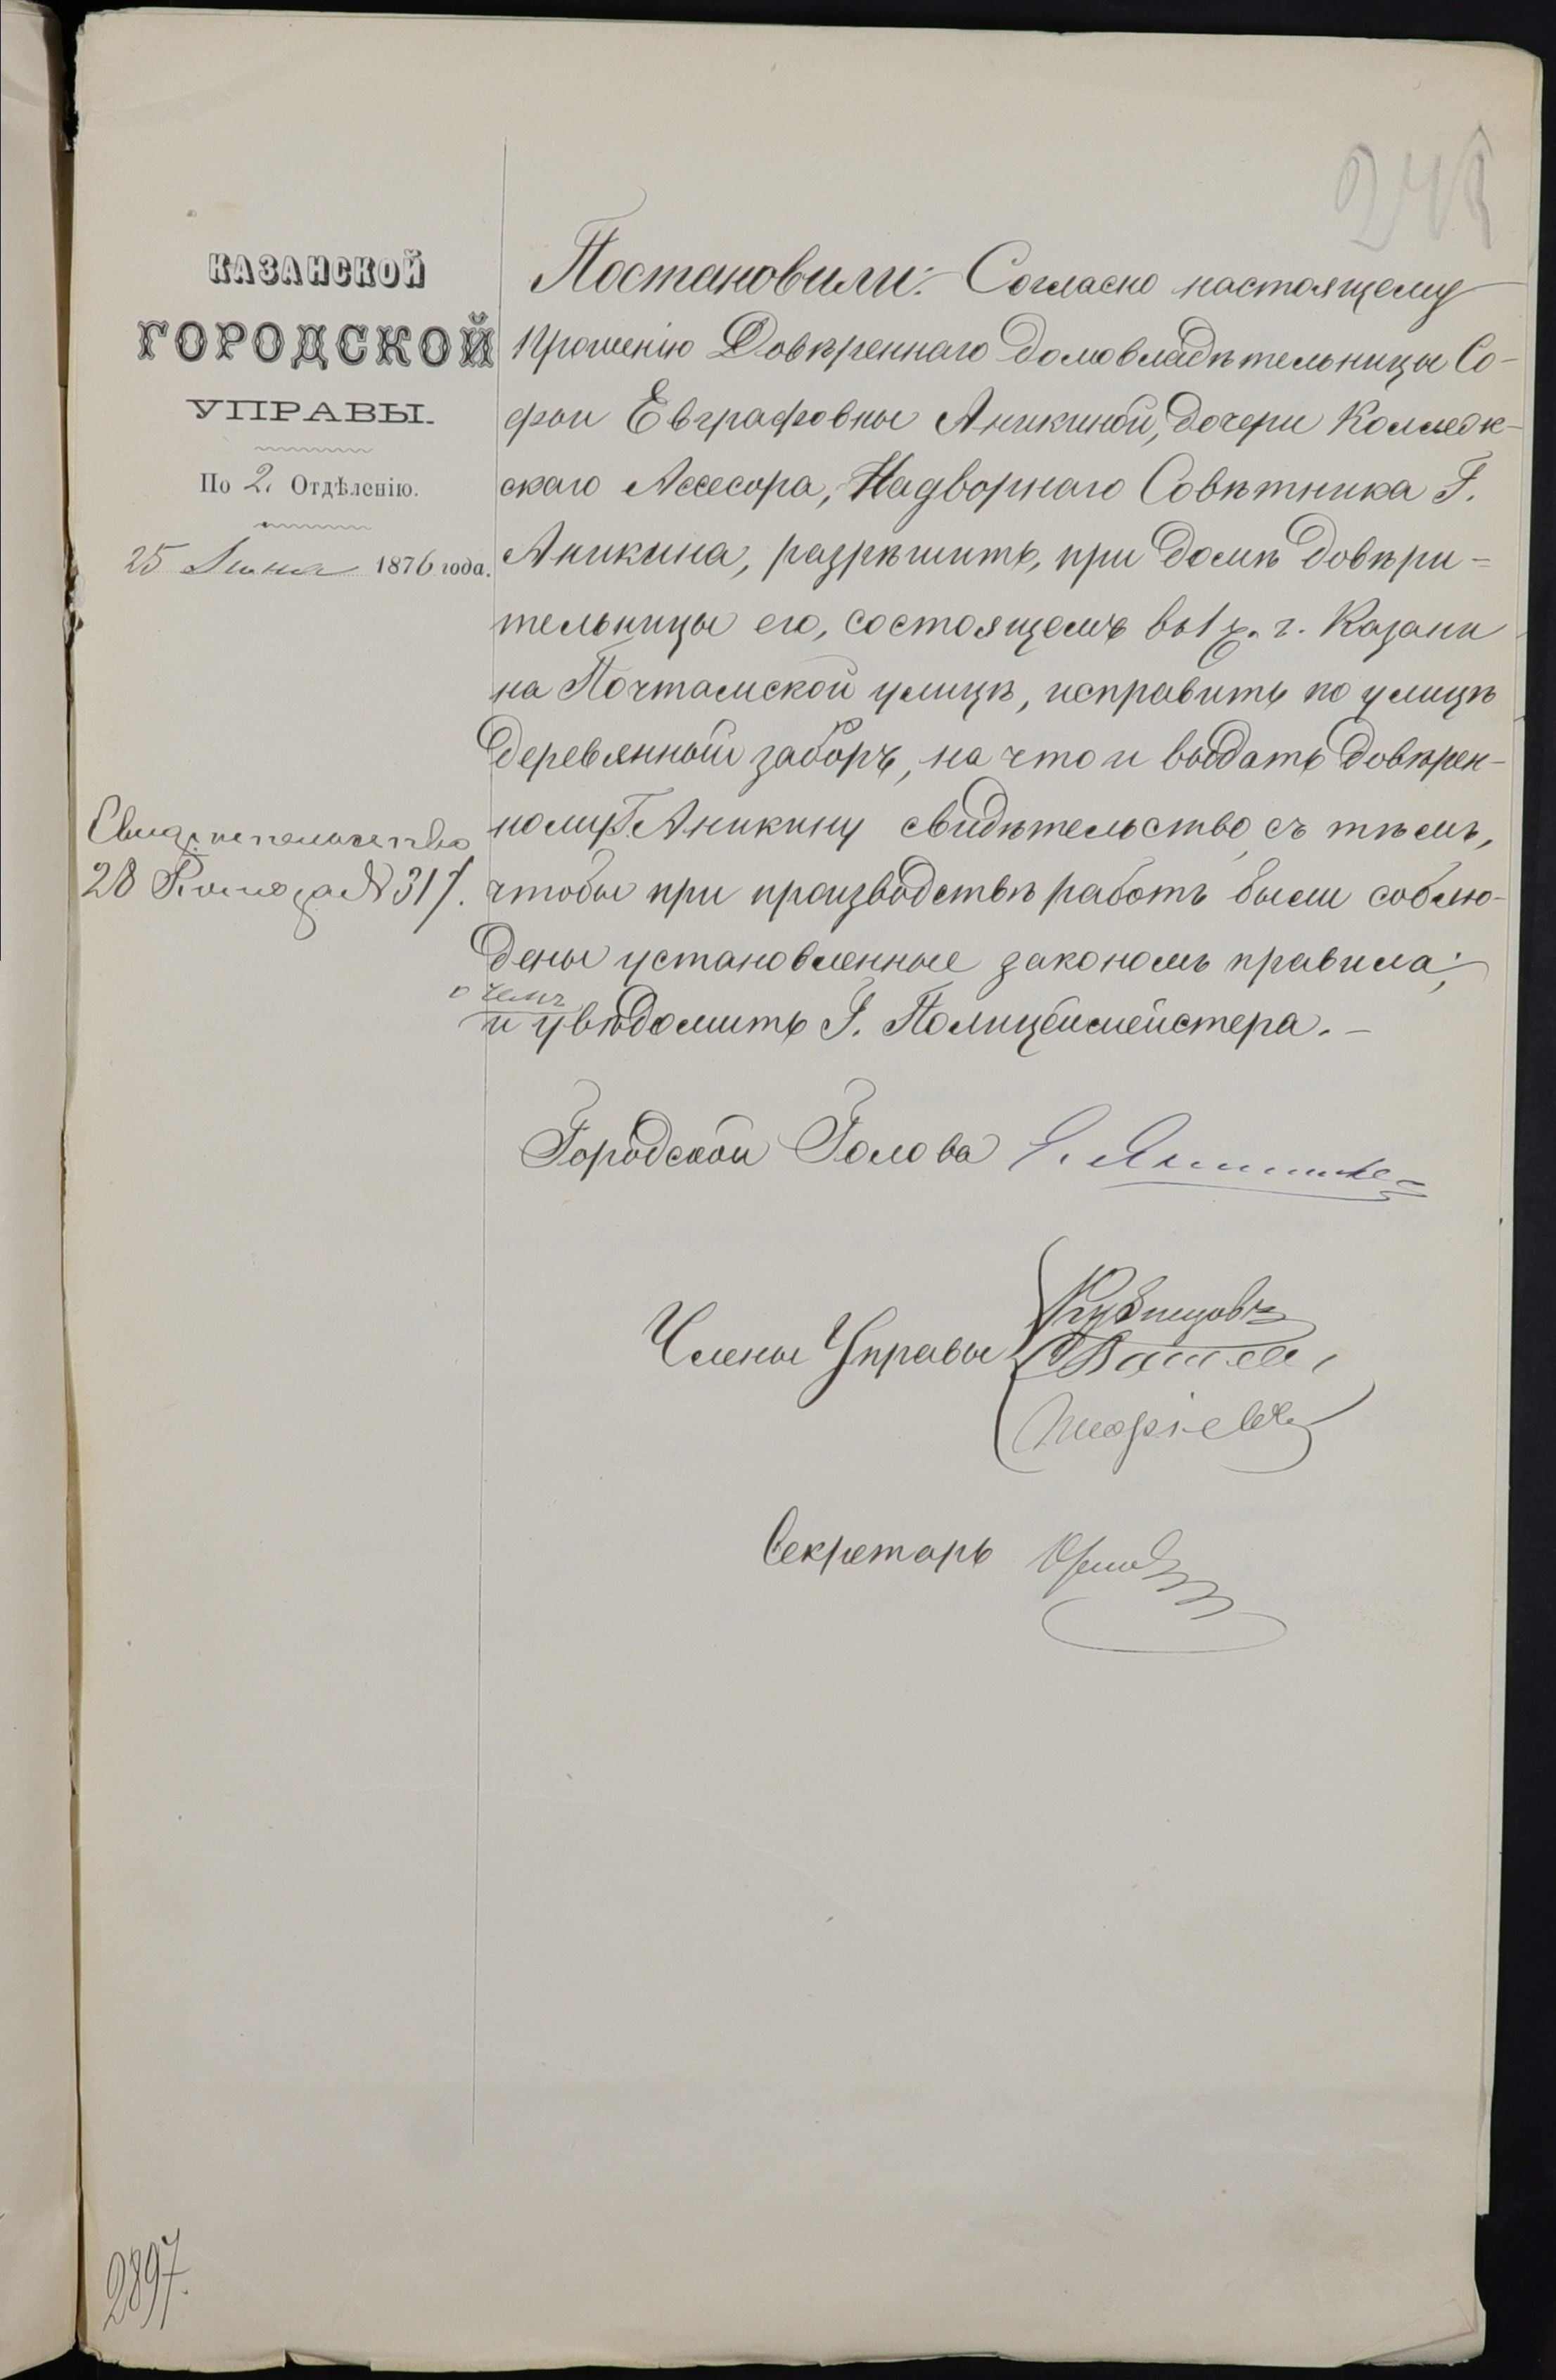 КАЗАНСКОЙ
ГОРОДСКОЙ
УПРАВЫ.
По 2. Отдѣленію.
25 Іюня 1876 года.
Свидѣтельство
28 № 317.
Постановили:- Согласно настоящему
прошенію Довѣреннаго домовладѣтельницы Со-
фьи Евграфовны Аникиной, дочери Коллеж-
скаго Ассесора, Надворнаго Совѣтника Г.
Аникина, разрѣшить, при домѣ довѣри=
тельницы его, состоящемъ въ 1 ч. г. Казани
на Почтамской улицѣ, исправить по улицѣ
деревянный заборъ, на что и выдать довѣрен-
ному Г. Аникину свидѣтельство, съ тѣмъ,
чтобы при производствѣ работъ были соблю-
дены установленные закономъ правила;
о чемъ
и увѣдомить Г. Полицеймейстера.-
Городской Голова
Члены Управы
Кузнецовъ
Секретарь
2897.